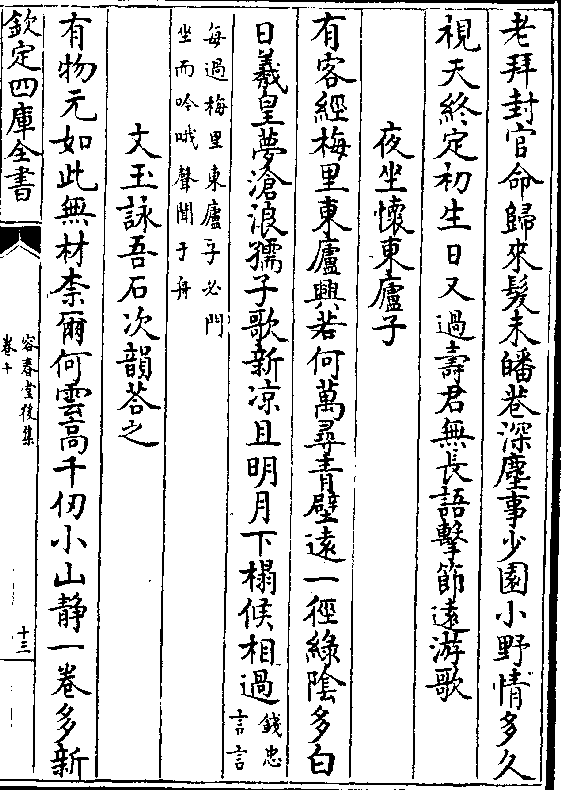 老拜封官命歸來髮未皤巷深塵事少園小野情多久
視天終定初生日又過壽君無長語擊節遠游歌
夜坐懷東廬子
有客經梅里東廬興若何萬尋青壁遠一徑綠陰多白
日羲皇夢滄浪孺子歌新凉且明月下榻候相過
錢忠
言言
每過梅里東廬子必門
坐而吟哦聲聞于舟
文玉詠吾石次韻荅之
有物元如此無材柰爾何雲高千仞小山靜一卷多新
欽定四庫全書
容春堂後集
卷十
十三